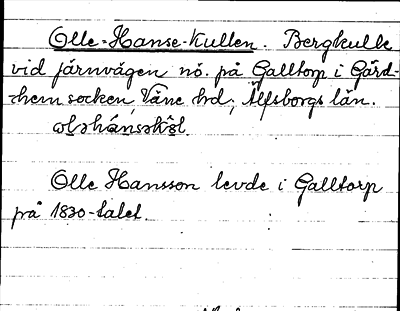 Olle-Hanse-Kullen. Bergkulle
vid järnvägen nö. på Galltorp i Gärd-
hem socken, Väne hd; Älfsborgs län.
Olle Hansson levde i Galltorp
på 1830-talet.